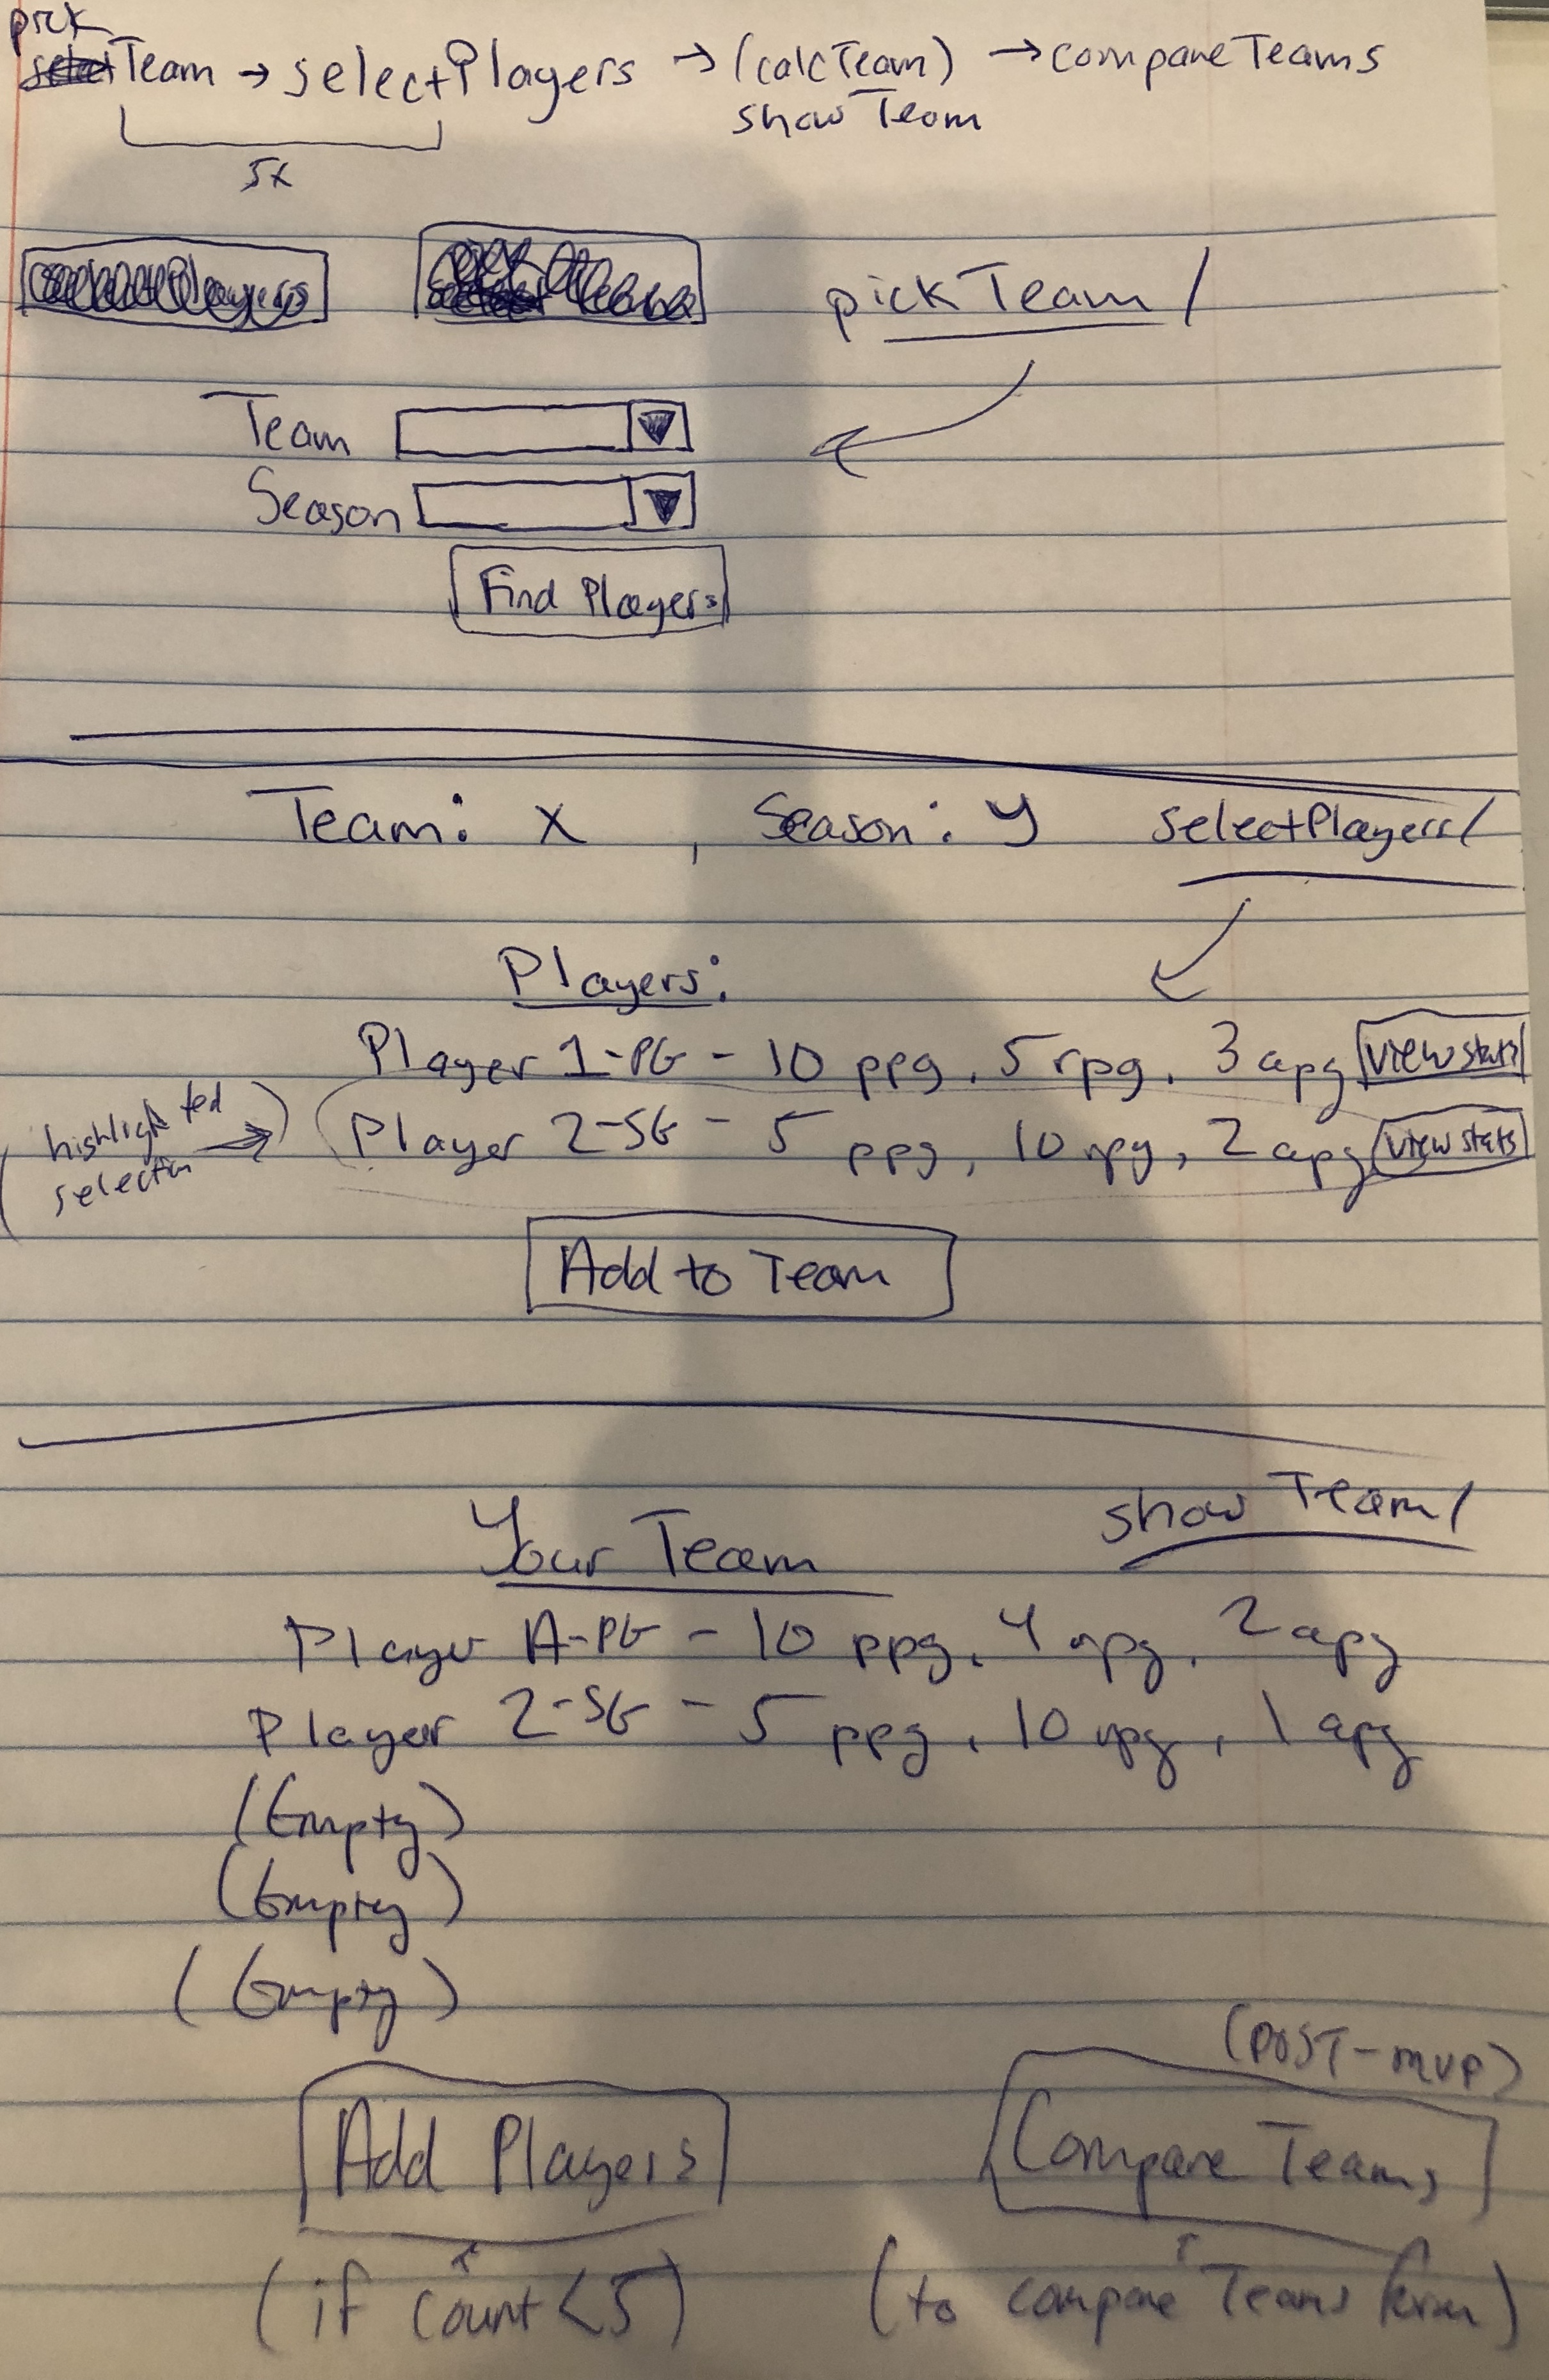 pick
Team → selectPlayers → (calcTeam) → compareTeams
showTeam
5x
pickTeam/
Team
Season
Find Players
Team: X , Season: Y selectPlayers/
Players:
Player 1-PG - 10 ppg, 5 rpg, 3 apg view stats
(highlighted selection →) Player 2-SG - 5 ppg, 10 rpg, 2 apg view stats
Add to Team
Your Team showTeam/
Player A-PG - 10 ppg, 4 rpg, 2 apg
Player 2-SG - 5 ppg, 10 rpg, 1 apg
(Empty)
(Empty)
(Empty)
(POST-MVP)
Add Players Compare Teams
(if count < 5) (to compare Teams form)